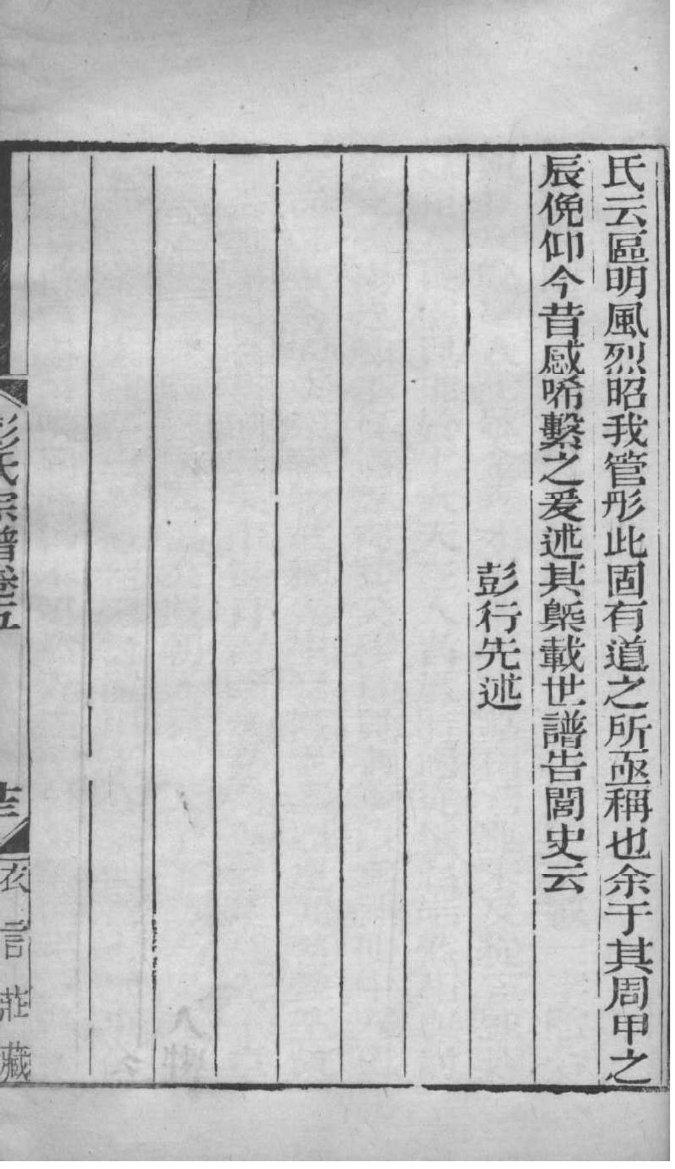 氏云區明風烈昭我管彤此固有道之所亟稱也余于其周甲之
辰俛仰今昔感唏繫之爰述其槩載世譜告閭史云
彭行先述
彭氏宗譜卷五
衣言莊藏